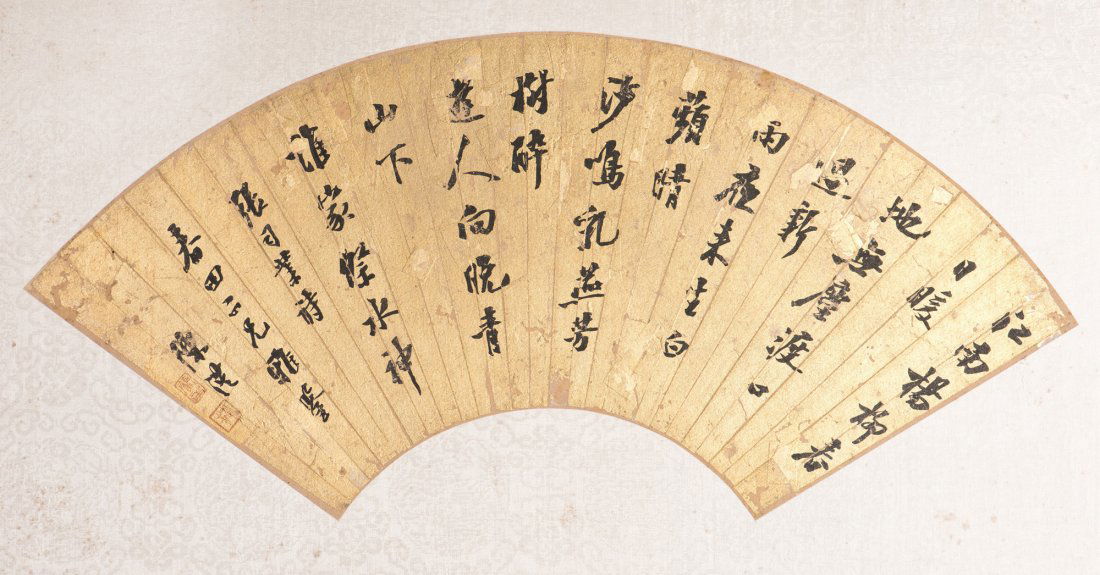 江南楊柳春
日暖
地無塵渡口
過新
雨夜來生白
蘋晴
沙鳴乳燕芳
樹醉
遊人向晚青
山下
誰家祭水神
張司業詩
春田二兄雅鑒
陳